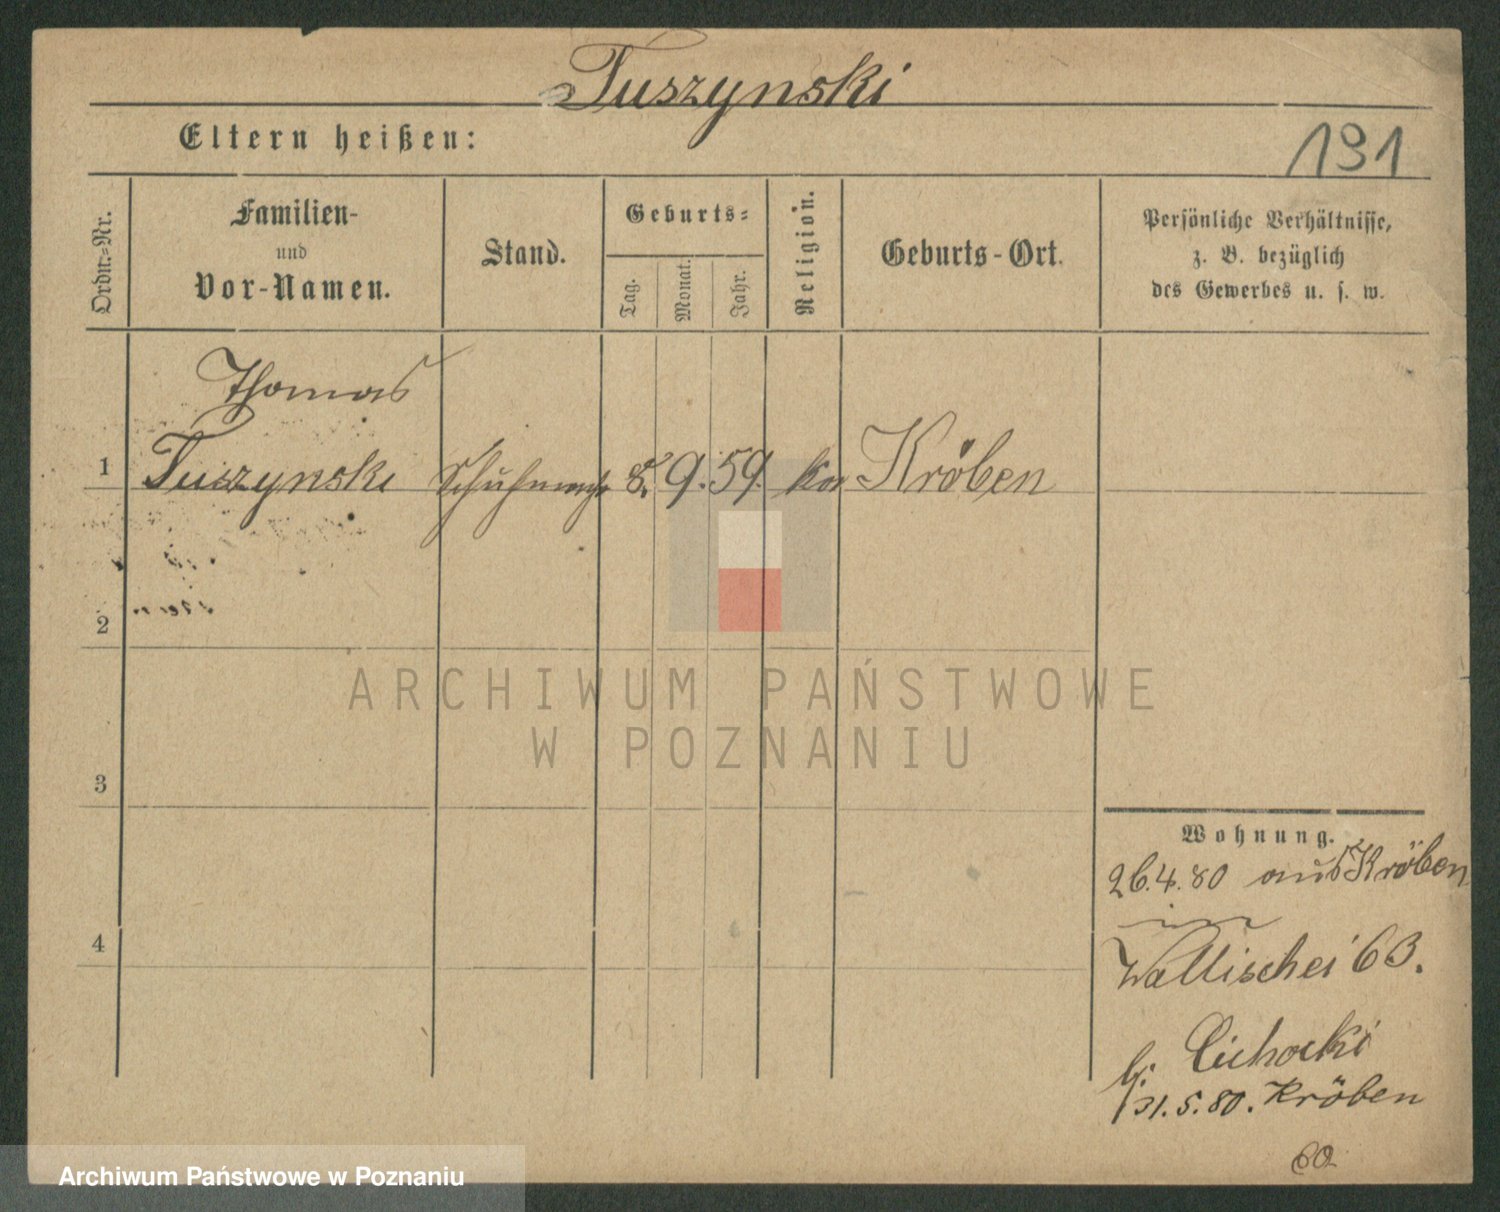 Tuszynski
Eltern heißen:
191
Ordn.-Nr.
Familien-
und
Vor-Namen.
Stand.
Geburts-
Tag.
Monat.
Jahr.
Religion.
Geburts-Ort.
Persönliche Verhältnisse,
z. B. bezüglich
des Gewerbes u. s. w.
Thomas
1 Tuszynski Schuhmach 8. 9. 59. ka Kröben
2
3
4
ARCHIWUM PAŃSTWOWE
W POZNANIU
Wohnung.
26.4.80 aus Kröben
in
Wallischei 63.
b. Cichocki
31.5.80. Kröben
Archiwum Państwowe w Poznaniu